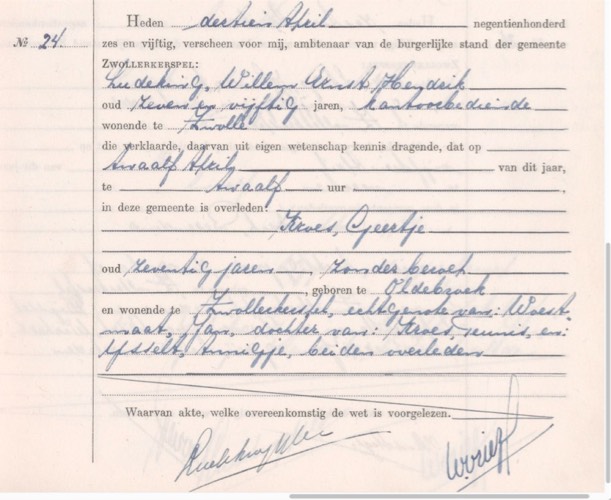 Heden dertien April negentienhonderd
№ 24. zes en vijftig, verscheen voor mij, ambtenaar van de burgerlijke stand der gemeente
ZWOLLERKERSPEL:
Ludeking, Willem Ernst Hendrik
oud zeven en vijftig jaren, kantoorbediende
wonende te Zwolle
die verklaarde, daarvan uit eigen wetenschap kennis dragende, dat op
twaalf April van dit jaar,
te twaalf uur ,
in deze gemeente is overleden:
Kroes, Geertje
oud zeventig jaren, zonder beroep
, geboren te Oldebroek
en wonende te Zwollerkerspel, echtgenote van: Woest-
maat, Jan, dochter van: Kroes, Teunis, en:
IJsselt, Annigje, beiden overleden
Waarvan akte, welke overeenkomstig de wet is voorgelezen.